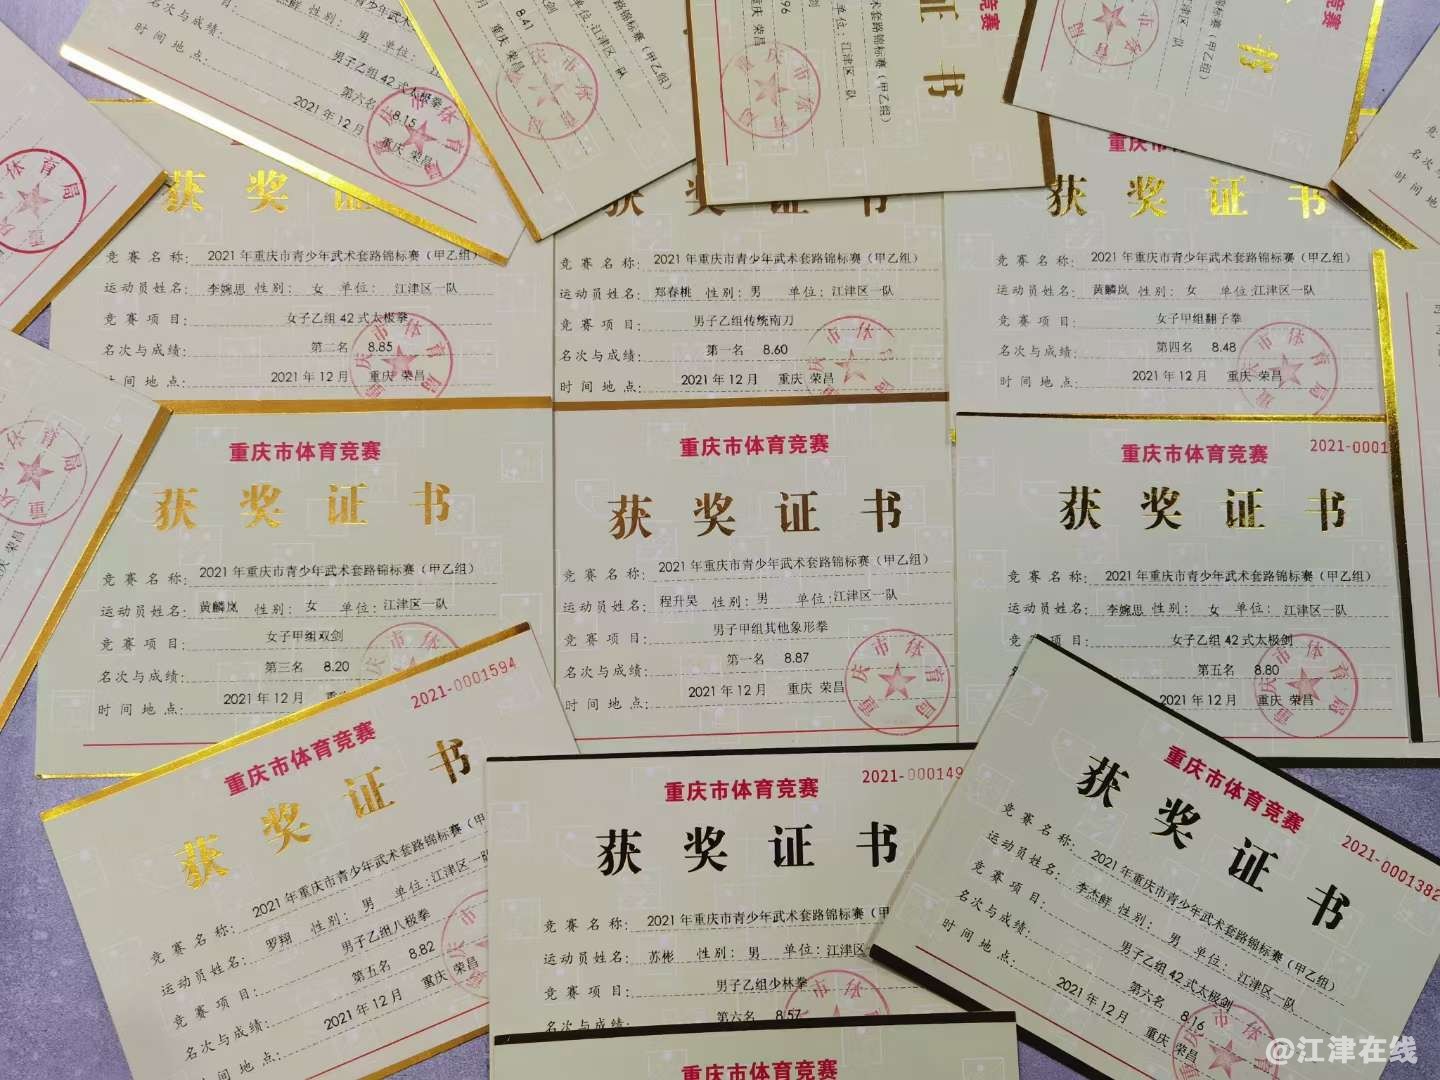 男 单位:
男子乙组42式太极拳
第六名 8.15
2021年12月 重庆 荣昌
名次与成绩:
时间地点:
8.41
重庆 荣昌
单位:江津区一队
江津区一队
证 书
获奖证
竞赛名称: 2021年重庆市青少年武术套路锦标赛（甲乙组）
运动员姓名: 李婉思 性别: 女 单位:江津区一队
竞赛项目: 女子乙组42式太极拳
名次与成绩: 第二名 8.85
时间地点: 2021年12月 重庆 荣昌
竞赛名称: 2021年重庆市青少年武术套路锦标赛（甲乙组）
运动员姓名: 郑春桃 性别: 男 单位:江津区一队
竞赛项目: 男子乙组传统南刀
名次与成绩: 第一名 8.60
时间地点: 2021年12月 重庆 荣昌
获奖证书
竞赛名称: 2021年重庆市青少年武术套路锦标赛（甲乙组）
运动员姓名: 黄麟岚 性别: 女 单位:江津区一队
竞赛项目: 女子甲组翻子拳
名次与成绩: 第四名 8.48
时间地点: 2021年12月 重庆 荣昌
重庆市体育竞赛
获奖证书
竞赛名称: 2021年重庆市青少年武术套路锦标赛（甲乙组）
运动员姓名: 黄麟岚 性别: 女 单位:江津区一队
竞赛项目: 女子甲组双剑
名次与成绩: 第三名 8.20
时间地点: 2021年12月 重庆
重庆市体育竞赛
获奖证书
竞赛名称: 2021年重庆市青少年武术套路锦标赛（甲乙组）
运动员姓名: 程升昊 性别: 男 单位:江津区一队
竞赛项目: 男子甲组其他象形拳
名次与成绩: 第一名 8.87
时间地点: 2021年12月 重庆 荣昌
重庆市体育局
重庆市体育竞赛
2021-0001
获奖证书
竞赛名称: 2021年重庆市青少年武术套路锦标赛（甲乙组）
运动员姓名: 李婉思 性别: 女 单位:江津区一队
竞赛项目: 女子乙组42式太极剑
第五名 8.80
2021年12月 重庆 荣昌
重庆市体育局
2021-0001594
重庆市体育竞赛
获奖证书
竞赛名称: 2021年重庆市青少年武术套路锦标赛（甲
运动员姓名: 罗翔 性别: 男 单位:江津区一队
竞赛项目: 男子乙组八极拳
名次与成绩: 第五名 8.82
时间地点: 2021年12月 重庆 荣昌
2021-000149
重庆市体育竞赛
获奖证书
竞赛名称: 2021年重庆市青少年武术套路锦标赛（甲
运动员姓名: 苏彬 性别: 男 单位:江津区
竞赛项目: 男子乙组少林拳
名次与成绩: 第六名 8.57
重庆市体育竞赛
重庆市体育竞赛
2021-0001382
获奖证书
竞赛名称: 2021年重庆市青少年武术套路锦标赛（甲乙组）
运动员姓名: 李杰鲜 性别: 男 单位:江津区一队
竞赛项目: 男子乙组42式太极剑
名次与成绩: 第六名 8.16
时间地点: 2021年12月 重庆 荣昌
@江津在线